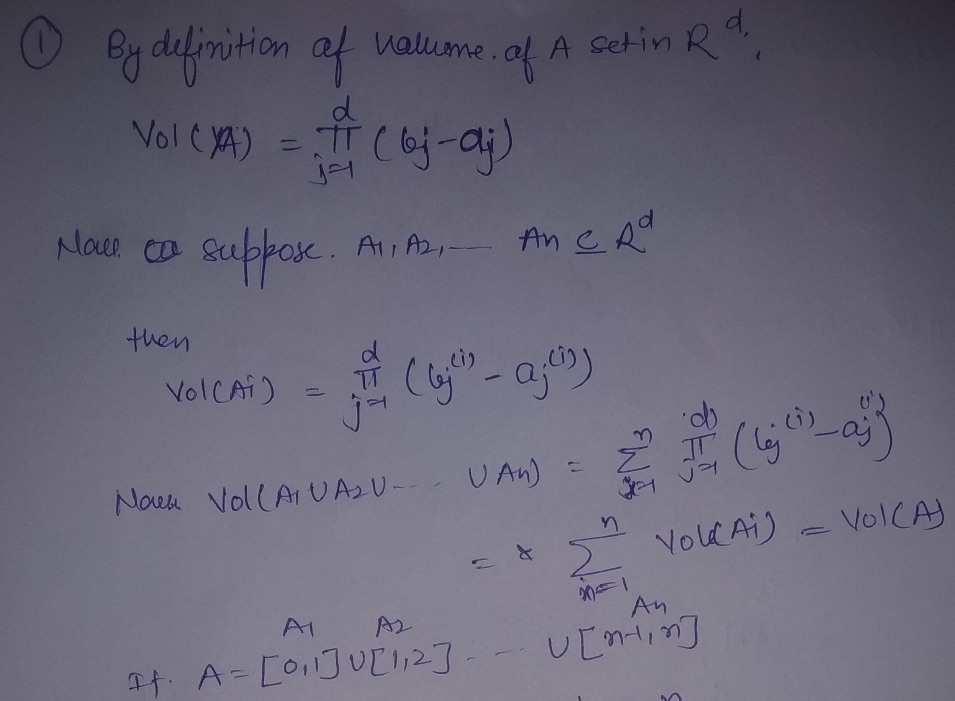 ① By definition of volume. of A set in R^d.
Vol(A) = d∏j=1 (bj - aj)
Now suppose. A1, A2, — An ⊆ R^d
then
Vol(Ai) = d∏j=1 (bj^(i) - aj^(i))
Now Vol(A1 ∪ A2 ∪ - - - ∪ An) = n∑i=1 d∏j=1 (bj^(i) - aj^(i))
= n∑i=1 Vol(Ai) = Vol(A)
A1 A2 An
If. A = [0,1] ∪ [1,2] - - - ∪ [n-1, n]